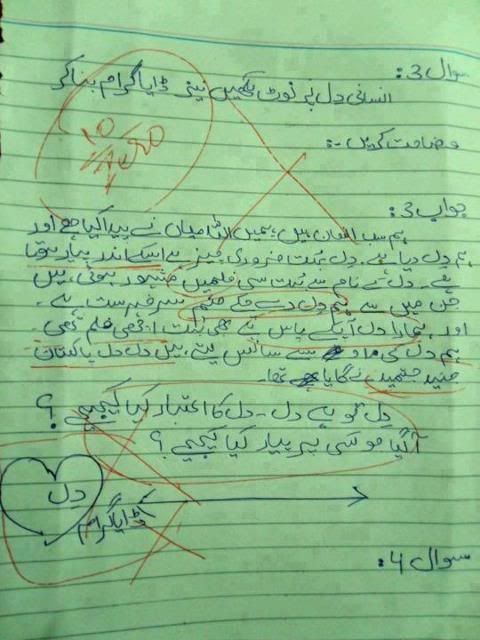 سوال 3:
انسانی دل پر نوٹ لکھیں نیز ڈایاگرام بنا کر
وضاحت کریں۔:
10
Zero
جواب 3:
ہم سب انسان ہیں، ہمیں اللہ میاں نے پیدا کیا ہے اور
ہمیں دل دیا ہے۔ دل بہت ضروری چیز ہے اسکے اندر پیار ہوتا
ہے۔ دل کے نام سے بہت سی فلمیں مشہور ہوئی ہیں
جن میں سے ہم دل دے چکے صنم سرفہرست ہے۔
اور ہمارا دل آپکے پاس ہے بھی بہت اچھی فلم تھی۔
ہم دل کی سے سانس لیتے ہیں دل دل پاکستان
جنید جمشید نے گایا تھا۔
دل تو ہے دل۔ دل کا اعتبار کیا کیجیے ؟
آ گیا جو کسی پر پیار کیا کیجیے ؟
دل
ڈایاگرام
سوال 4: